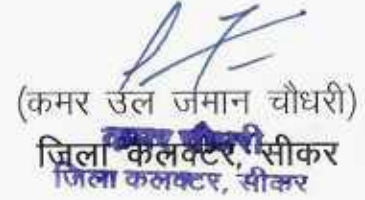 (कमर उल जमान चौधरी)
जिला कलक्टर, सीकर
जिला कलक्टर, सीकर